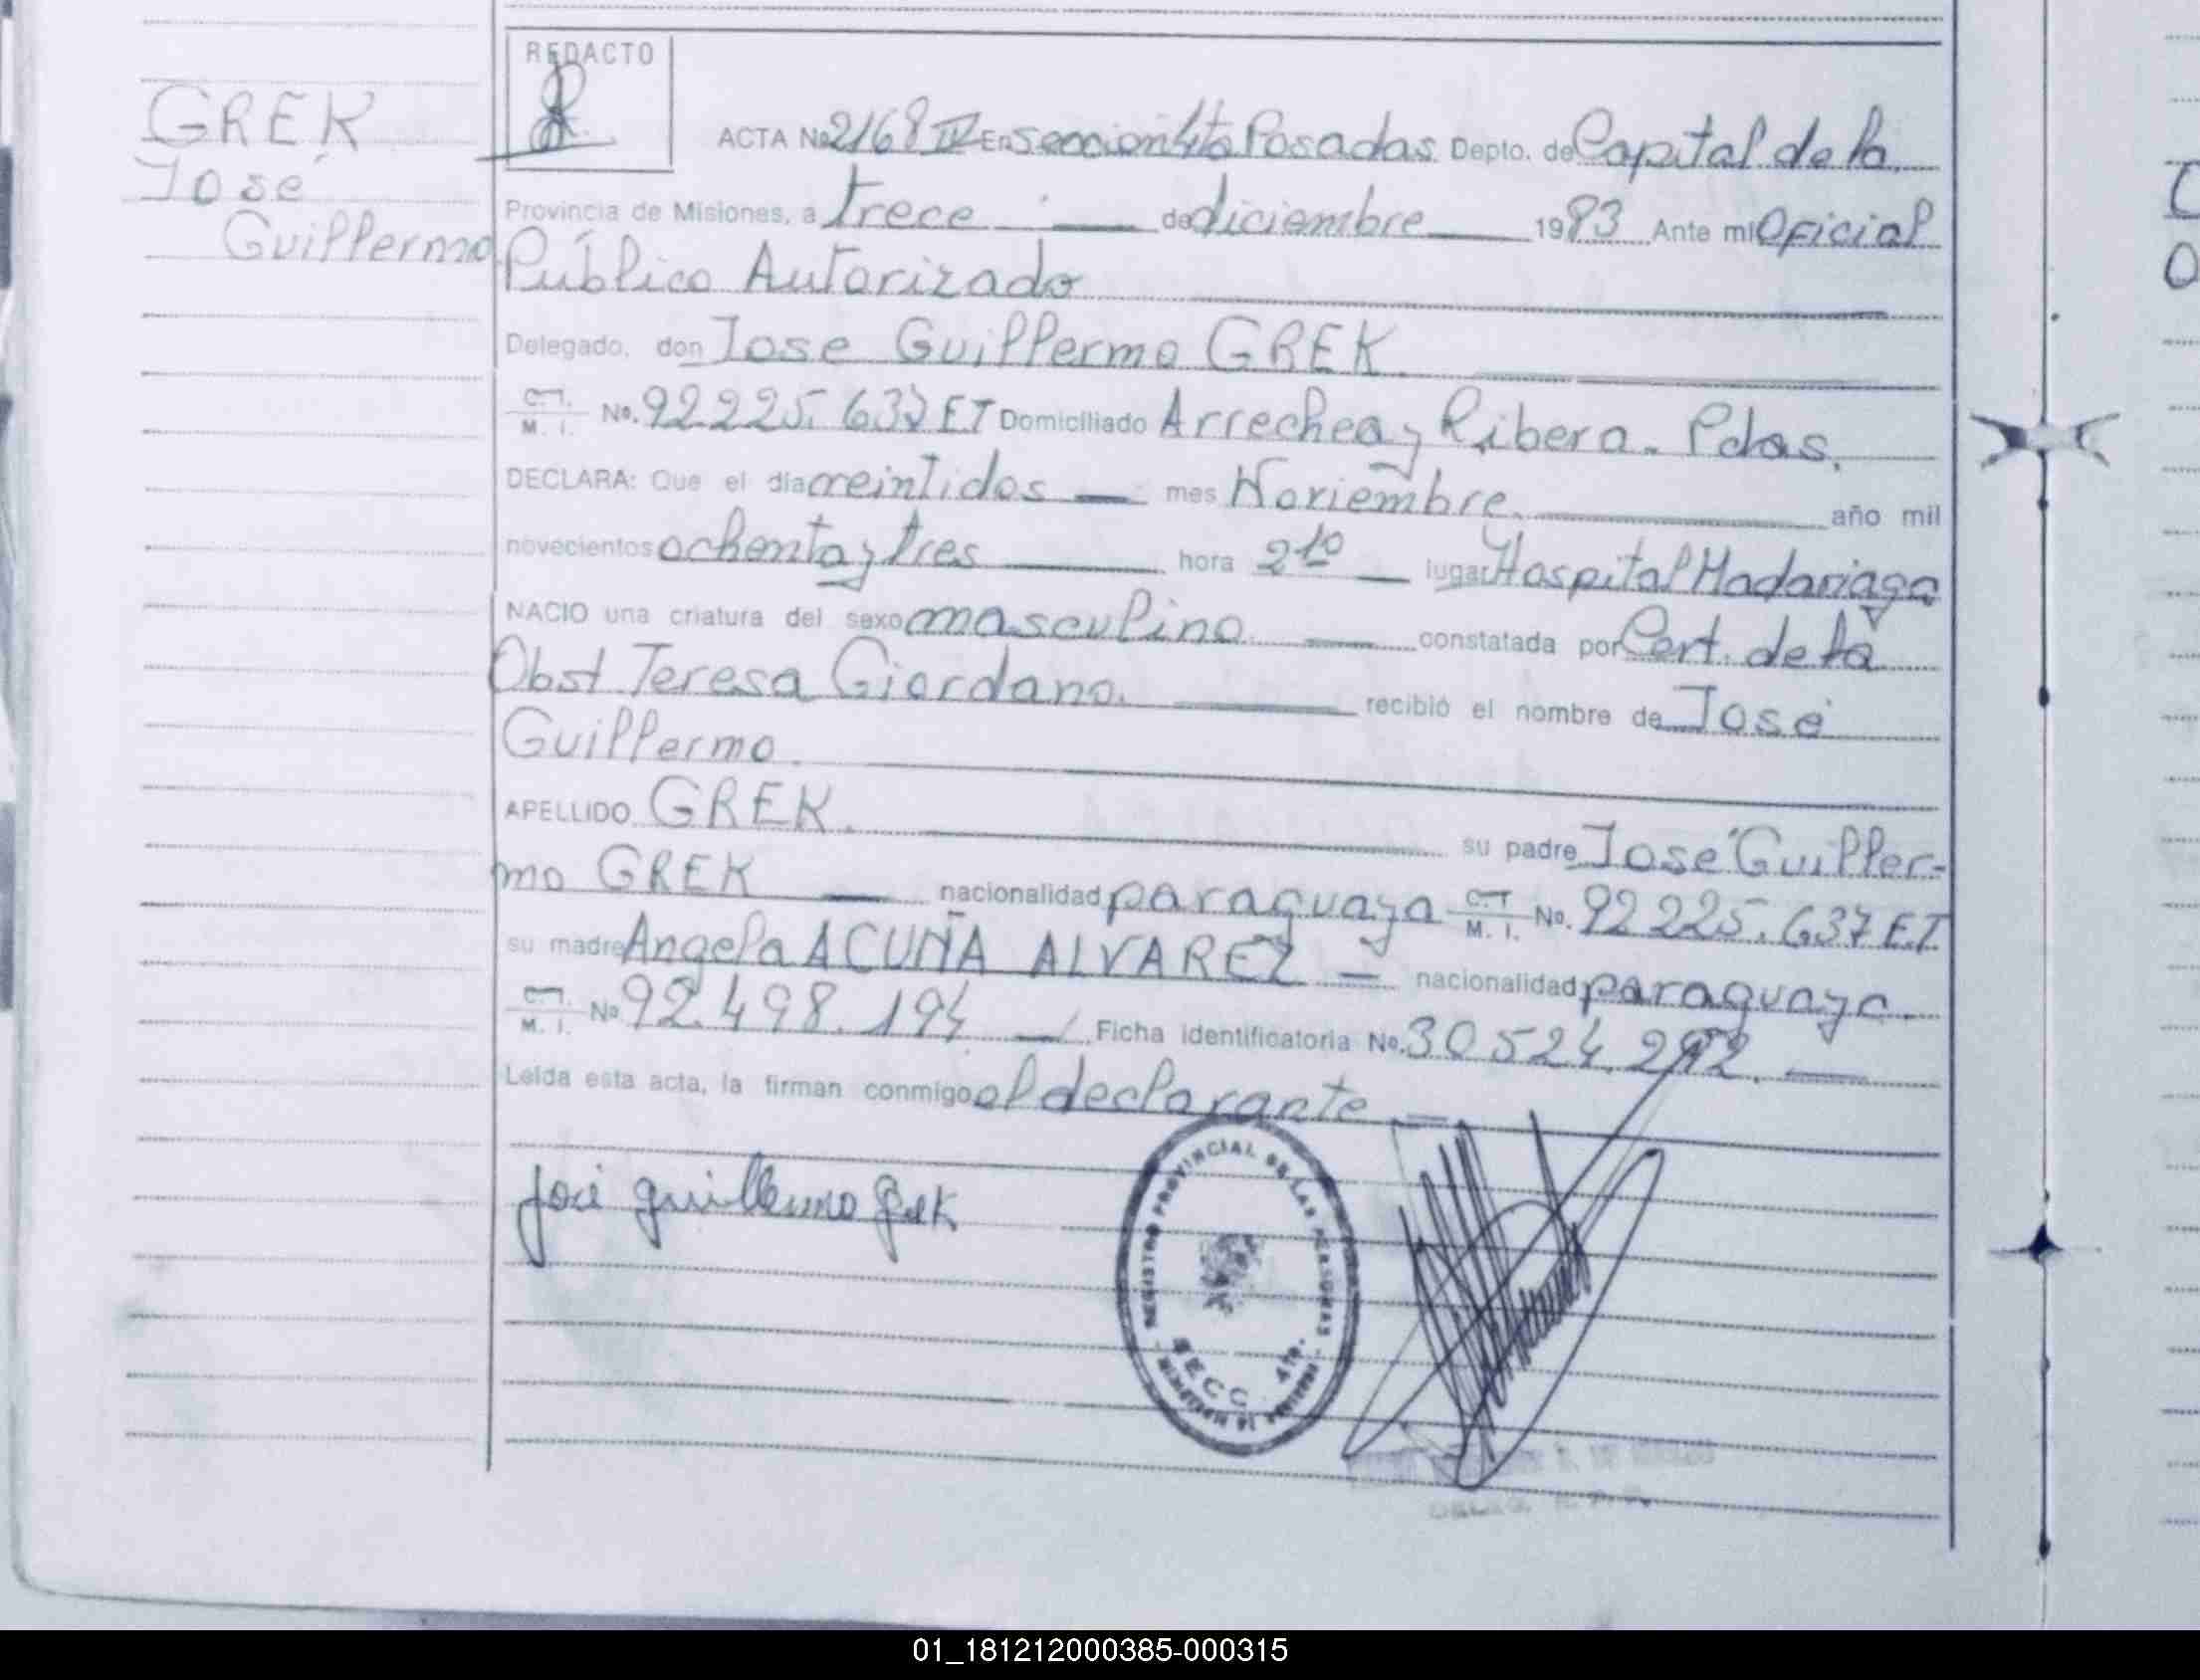 REDACTO
GREK
José
Guillermo
ACTA No 2168 IV En seccion 4ta Posadas Depto. de Capital de la
Provincia de Misiones, a trece de diciembre 1983 Ante mi Oficial
Público Autorizado
Delegado, don Jose Guillermo GREK.
C.I. M. I. No. 92225.637 ET Domiciliado Arrechea y Ribera. Pdas.
DECLARA: Que el día veintidos mes Noviembre. año mil
novecientos ochenta y tres hora 2 10 lugar Hospital Madariaga
NACIO una criatura del sexo masculino. constatada por Cert. de la
Obst Teresa Giordano. recibió el nombre de José
Guillermo.
APELLIDO GREK. su padre José Guiller-
mo GREK nacionalidad paraguaya C.I M. I. No. 92 225.637 E.T
su madre Angela ACUÑA ALVAREZ nacionalidad paraguaya.
C.I. M. I. No 92.498.194 Ficha identificatoria No. 30524.292.
Leída esta acta, la firman conmigo el declarante
José guillermo grek
REGISTRO PROVINCIAL DE LAS PERSONAS
SECC. 4ta.
01_181212000385-000315